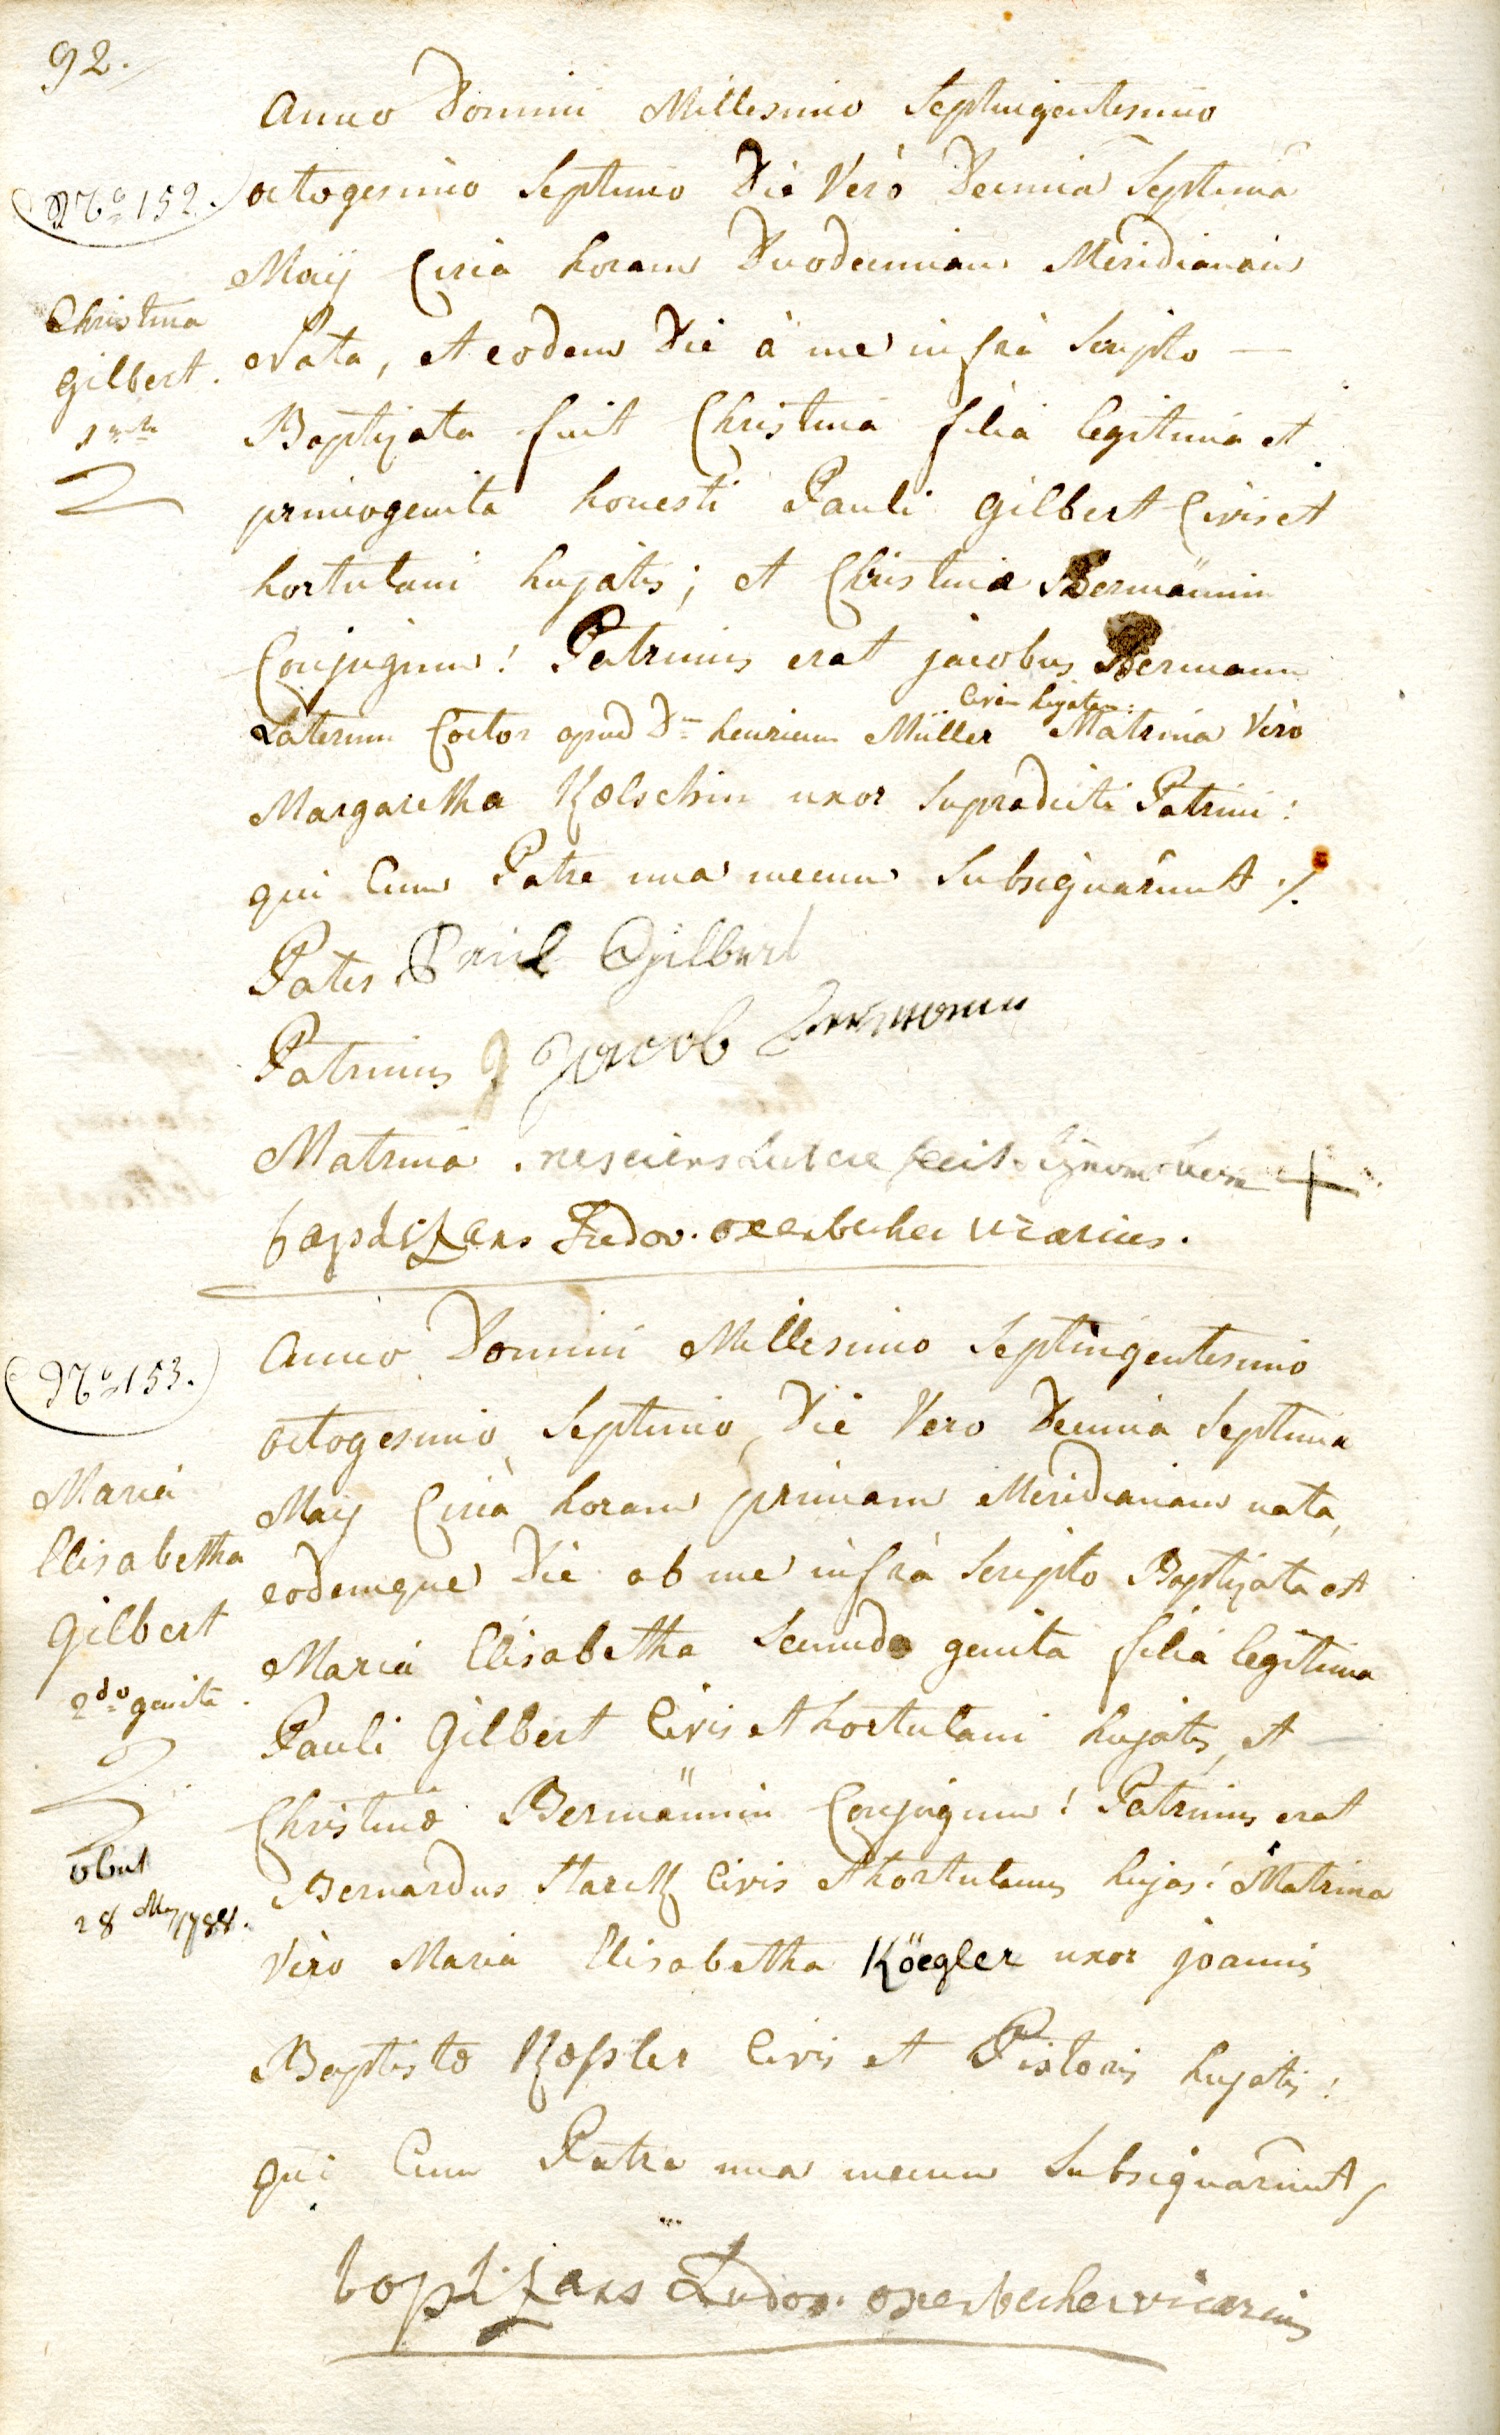 92.
Nº 152.
Christina
Gilbert.
Anno Domini Millesimo Septingentesimo
octogesimo Septimo Die Verò Decimâ Septimâ
Maij Circà horam Duodecimam Meridianam
Nata, et eodem Die à me infrà Scripto —
Baptizata fuit Christina filia legitima et
primogenita honesti Pauli Gilbert Civis et
hortulani hujatis; et Christinæ Bermännin
Conjugum! Patrinus erat jacobus Bermann
Civem hujatem:
Laterum Coctor apud D= henricum Müller Matrina Verò
Margaretha Kælschin uxor Supradicti Patrini:
qui Cum Patre una mecum Subsignarunt ./.
Pater Paul Gilbert
Patrinus Jacob Bermann
Matrina. nesciens scribere fecit Signum Suum +
baptizans Ludov. oxenbecher vicarius.
Nº 153.
Maria
Elisabetha
Gilbert
2do genita
obiit
28 May 1788.
Anno Domini Millesimo Septingentesimo
octogesimo Septimo, Die Vero Decima Septima
Maij Circà horam primam Meridianam nata,
eodemque Die ab me infrà Scripto Baptizata est
Maria Elisabetha Secundo genita filia legitima
Pauli Gilbert Civis et hortulani hujatis, et
Christinæ Bermännin Conjugum! Patrinus erat
Bernardus Starck Civis et hortulanus hujas! Matrina
Verò Maria Elisabetha Köegler uxor joannis
Baptistæ Kæßler Civis et Pistoris hujatis!
qui Cum Patre una mecum Subsignarunt/
baptizans Ludov. oxenbecher vicarius